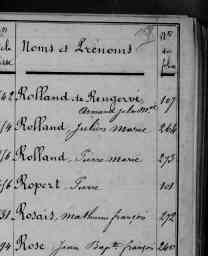 Noms et Prénoms
Rolland de Rengervé 107
Armand Julien Mie
Rolland, Julien Marie 264
Rolland, Pierre Marie 273
Ropert, Pierre 101
Rosais, Mathurin françois 272
Rose, Jean Bapte françois 240